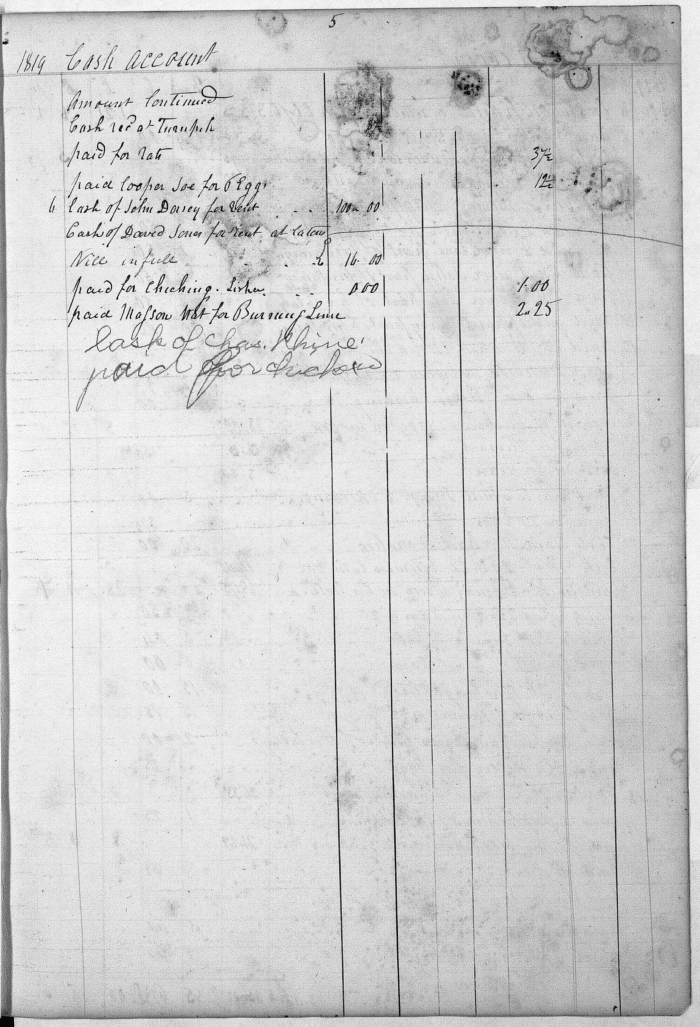 5
1819 Cash account
Amount Continued
Cash recd at Turnpik 8½
paid for rats 37½
paid Cooper Joe for 6 Eggs 12½
6 Cash of John Dorsey for rent 100 . 00
Cash of David Jones for rent at
in full 16 . 00
paid for Chicking . 0 00 1.00
paid for Burning Lime 2.25
Cash of Chas. Rhine
paid for chickens